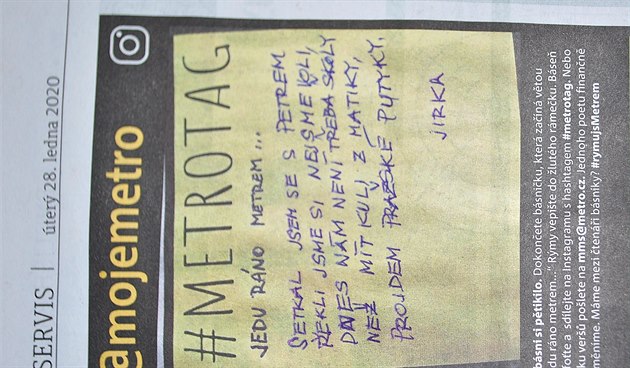 SERVIS | úterý 28. ledna 2020
@mojemetro
#METROTAG
JEDU RÁNO METREM...
SETKAL JSEM SE S PETREM
ŘEKLI JSME SI NEJSME VOLI,
DNES NÁM NENÍ TŘEBA ŠKOLY
NEŽ MÍT KULI Z MATIKY,
PROJDEM PRAŽSKÉ PUTYKY.
JIRKA
básni si pětikilo. Dokončete básničku, která začíná větou
du ráno metrem...“ Rýmy vepište do žlutého rámečku. Báseň
foťte a sdílejte na Instagramu s hashtagem #metrotag. Nebo
ku veršů pošlete na mms@metro.cz. Jednoho poetu finančně
měníme. Máme mezi čtenáři básníky? #rymujsMetrem